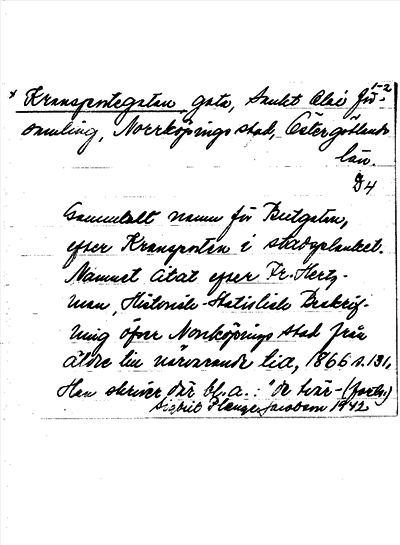 1-2
x Kransportegatan, gata, Sankt Olai för-
samling, Norrköpings stad, Östergötlands
län.
D4
Gammalt namn för Butgatan,
efter Kransporten i stadsplanket.
Namnet citat efter Fr. Hertz-
man, Historisk-Statistisk Beskrif-
ning öfver Norrköpings stad från
äldre till närvarande tid, 1866 s. 131.
Han skriver där bl.a.: "De tvär- (forts.)
Sigbrit Plænge Jacobson 1942